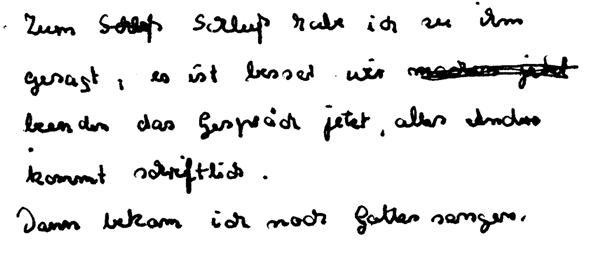 Zum Schluß habe ich zu ihm
gesagt, es ist besser wir
beenden das Gespräch jetzt, alles Andere
kommt schriftlich.
Dann bekam ich noch Gottes segen.